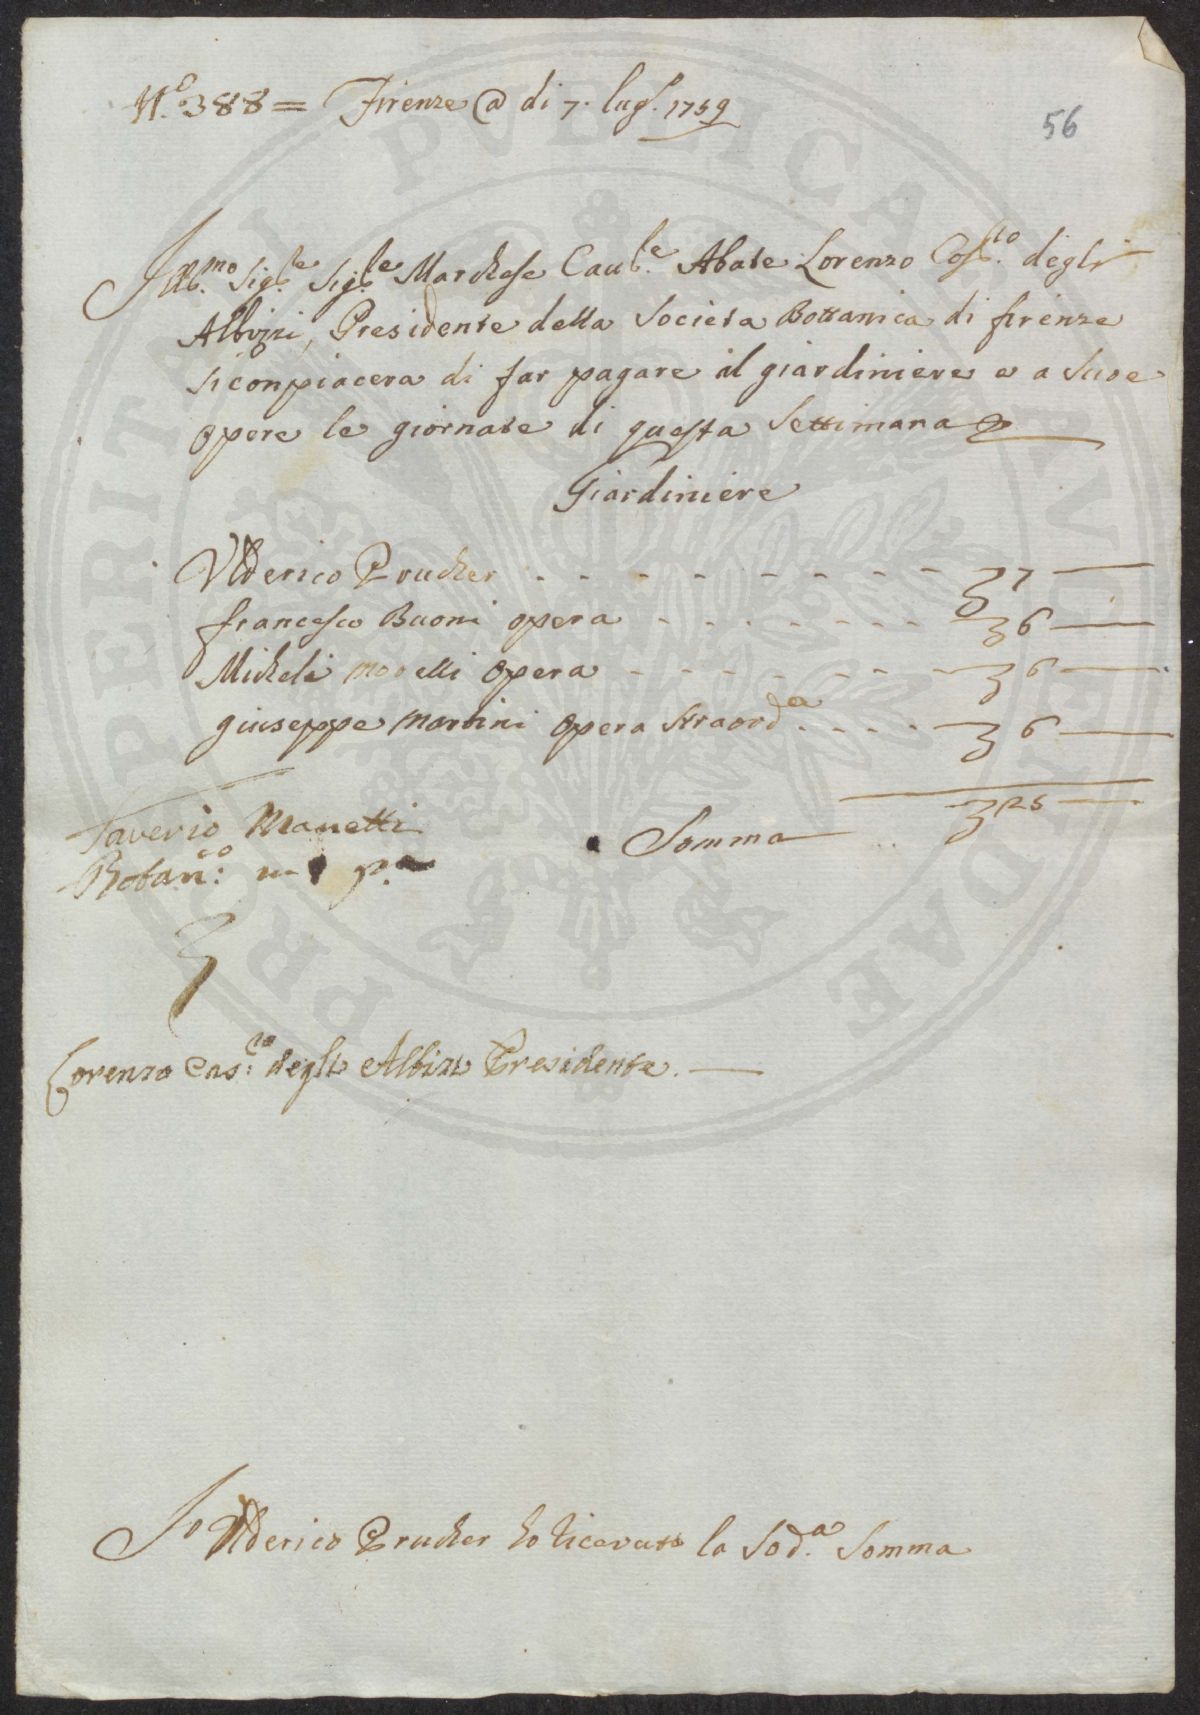 N.o 388 = Firenze @ di 7. lugl. 1759
56
Ill.mo Sig.re Sig.re Marchese Cau.re Abate Lorenzo Cos.to degli
Albizzi, Presidente della Societa Bottanica di firenze
si conpiacera di far pagare il giardiniere e a Sue
opere le giornate di questa Settimana
Giardiniere
Ulderico Prucker - - - - - - - - - - 7 —
francesco Buoni opera - - - - - - - 6 —
Michele morelli opera - - - - - - - 6 —
giuseppe martini opera straord.a - - - - 6 —
Saverio Manetti
Somma 25 —
Botan.co m p.a
Lorenzo Cos.to degli Albizi Presidente. —
Io Ulderico Prucker ho ricevuto la Sod.a Somma
PRO PERITATI PVBLICAE AVGENDAE